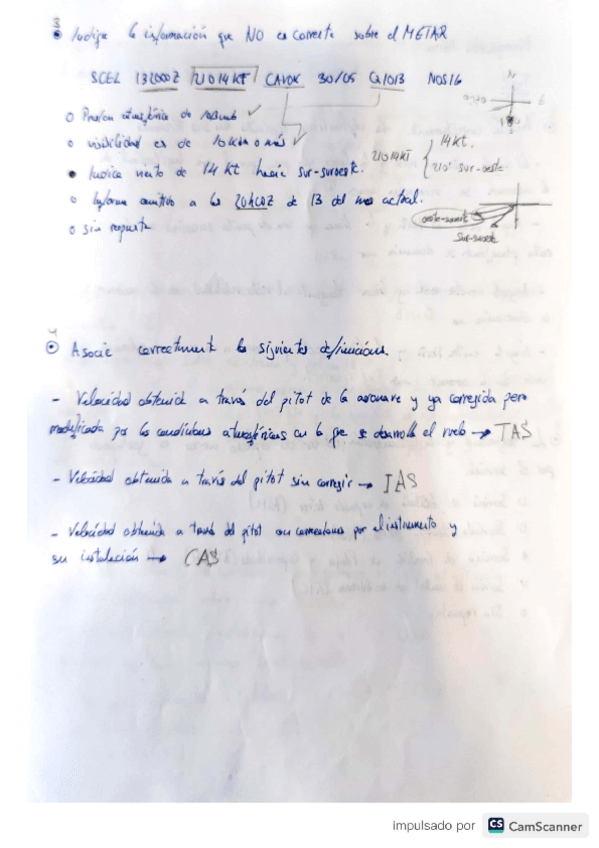 3
Indique la información que NO es correcta sobre el METAR
SCEL 132000Z 21014KT CAVOK 30/05 Q1013 NOSIG
o Presion atmosférica de ✓
o visibilidad es de 10 km o más ✓
• Indica viento de 14 KT hacia sur-suroeste.
21014KT { 14 KT.
210° sur-oeste
o Informe emitido a las 20h00Z de 13 del mes actual.
o sin respuesta
oeste-suroeste
Sur-suroeste
4
Asocie correctamente las siguientes definiciones.
- Velocidad obtenida a través del pitot de la aeronave y ya corregida pero
modificada por las condiciones atmosféricas en la que se desarrolla el vuelo → TAS
- Velocidad obtenida a través del pitot sin corregir → IAS
- Velocidad obtenida a través del pitot con correcciones por el instrumento y
su instalación → CAS
impulsado por CS CamScanner